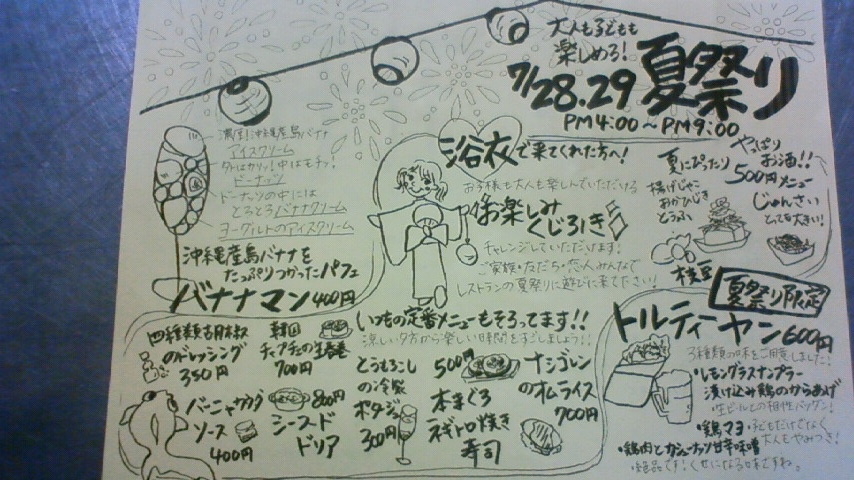 大人も子どもも
楽しめる!
夏祭り
7/28.29
PM4:00～PM9:00
濃厚!沖縄産島バナナ
アイスクリーム
外はカリッ!中はモチッ!
ドーナッツ
ドーナッツの中には
とろとろバナナクリーム
ヨーグルトのアイスクリーム
沖縄産島バナナを
たっぷりつかったパフェ
バナナマン400円
浴衣で来てくれた方へ!
お子様も大人も楽しんでいただける
お楽しみ
くじびき
チャレンジしていただけます!
ご家族・友だち・恋人みんなで
レストランの夏祭りに遊びに来て下さい!
やっぱり
お酒!!
500円メニュー
夏にぴったり
揚げじゃこ
おかひじき
とうふ
じゅんさい
とっても大きい!
枝豆
夏祭り限定
トルティーヤン600円
3種類の味をご用意しました!
・レモングラスナンプラー
漬け込み鶏のからあげ
・生ビールとの相性バツグン!
・鶏マヨ・子どもだけでなく
大人もやみつき!
・鶏肉とカシューナッツ甘辛味噌
・絶品です!くせになる味ですね。
いつもの定番メニューもそろってます!!
涼しい夕方から楽しい時間をすごしましょう!!
のドレッシング
350円
韓国
チャプチェの生春巻
700円
とうもろこし
の冷製
ポタージュ
300円
500円
本まぐろ
ネギトロ焼き
寿司
ナシゴレン
のオムライス
700円
バーニャカウダ
ソース
400円
800円
シーフード
ドリア